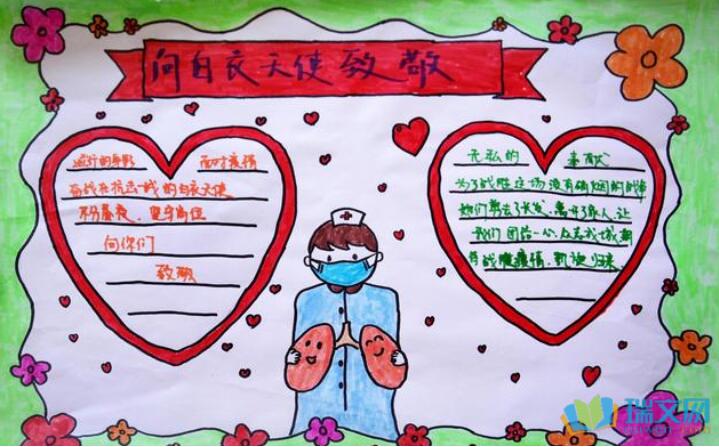 向白衣天使致敬
逆行的身影 面对疫情
奋战在抗击一线的白衣天使
不分昼夜、坚守岗位
向你们
致敬
无私的 奉献
为了战胜这场没有硝烟的战争
她们剪去了长发,离开了家人,让
我们团结一心,众志成城,期
待战胜疫情,凯旋归来
瑞文网